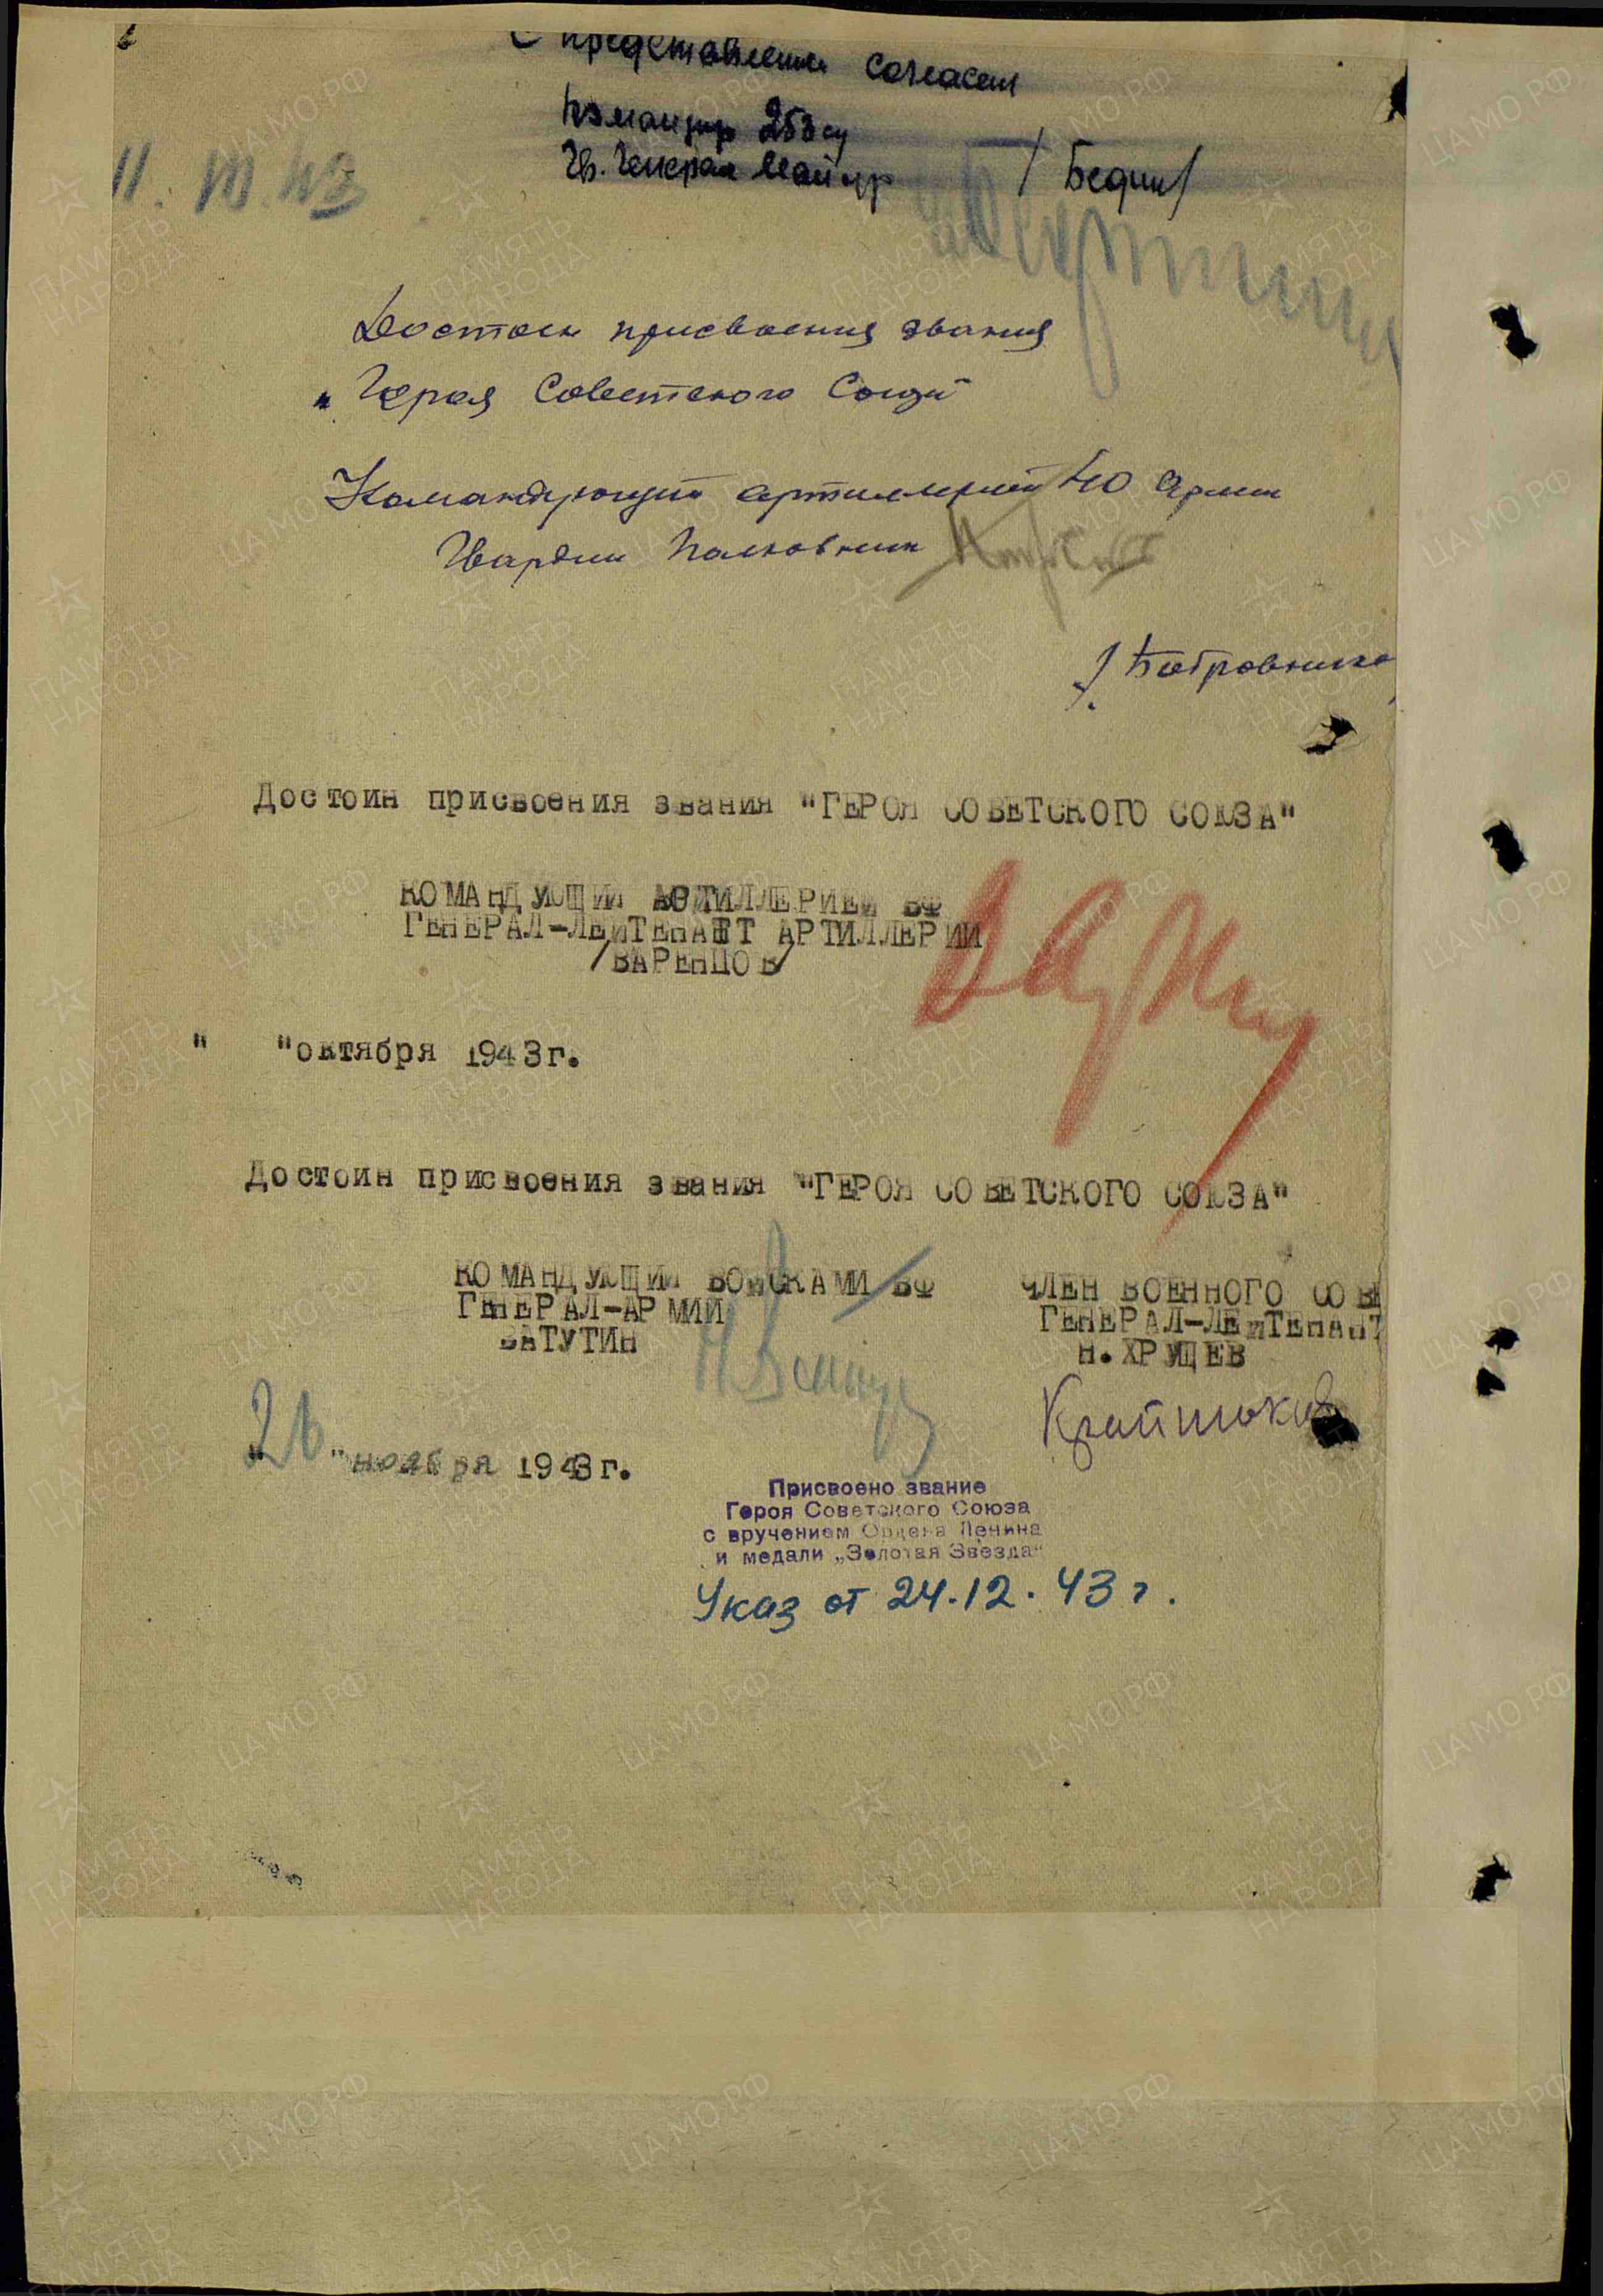 С представлением согласен
Командир 253 сд
Гв. Генерал Майор / Бедин /
11. 43
Достоин присвоения звания
"Героя Советского Союза"
Командующий артиллерией 40 Армии
Гвардии Полковник
/ Бобровников
Достоин присвоения звания "ГЕРОЯ СОВЕТСКОГО СОЮЗА"
КОМАНДУЮЩИЙ АРТИЛЛЕРИЕЙ ВФ
ГЕНЕРАЛ-ЛЕЙТЕНАНТ АРТИЛЛЕРИИ
/ВАРЕНЦОВ/
" "октября 1943г.
Достоин присвоения звания "ГЕРОЯ СОВЕТСКОГО СОЮЗА"
КОМАНДУЮЩИЙ ВОЙСКАМИ ВФ ЧЛЕН ВОЕННОГО СОВЕ
ГЕНЕРАЛ-АРМИИ ГЕНЕРАЛ-ЛЕЙТЕНАНТ
ВАТУТИН Н.ХРУЩЕВ
26 "ноября 1943г.
Присвоено звание
Героя Советского Союза
с вручением Ордена Ленина
и медали „Золотая Звезда"
Указ от 24.12.43 г.
ПАМЯТЬ НАРОДА
ЦА МО РФ